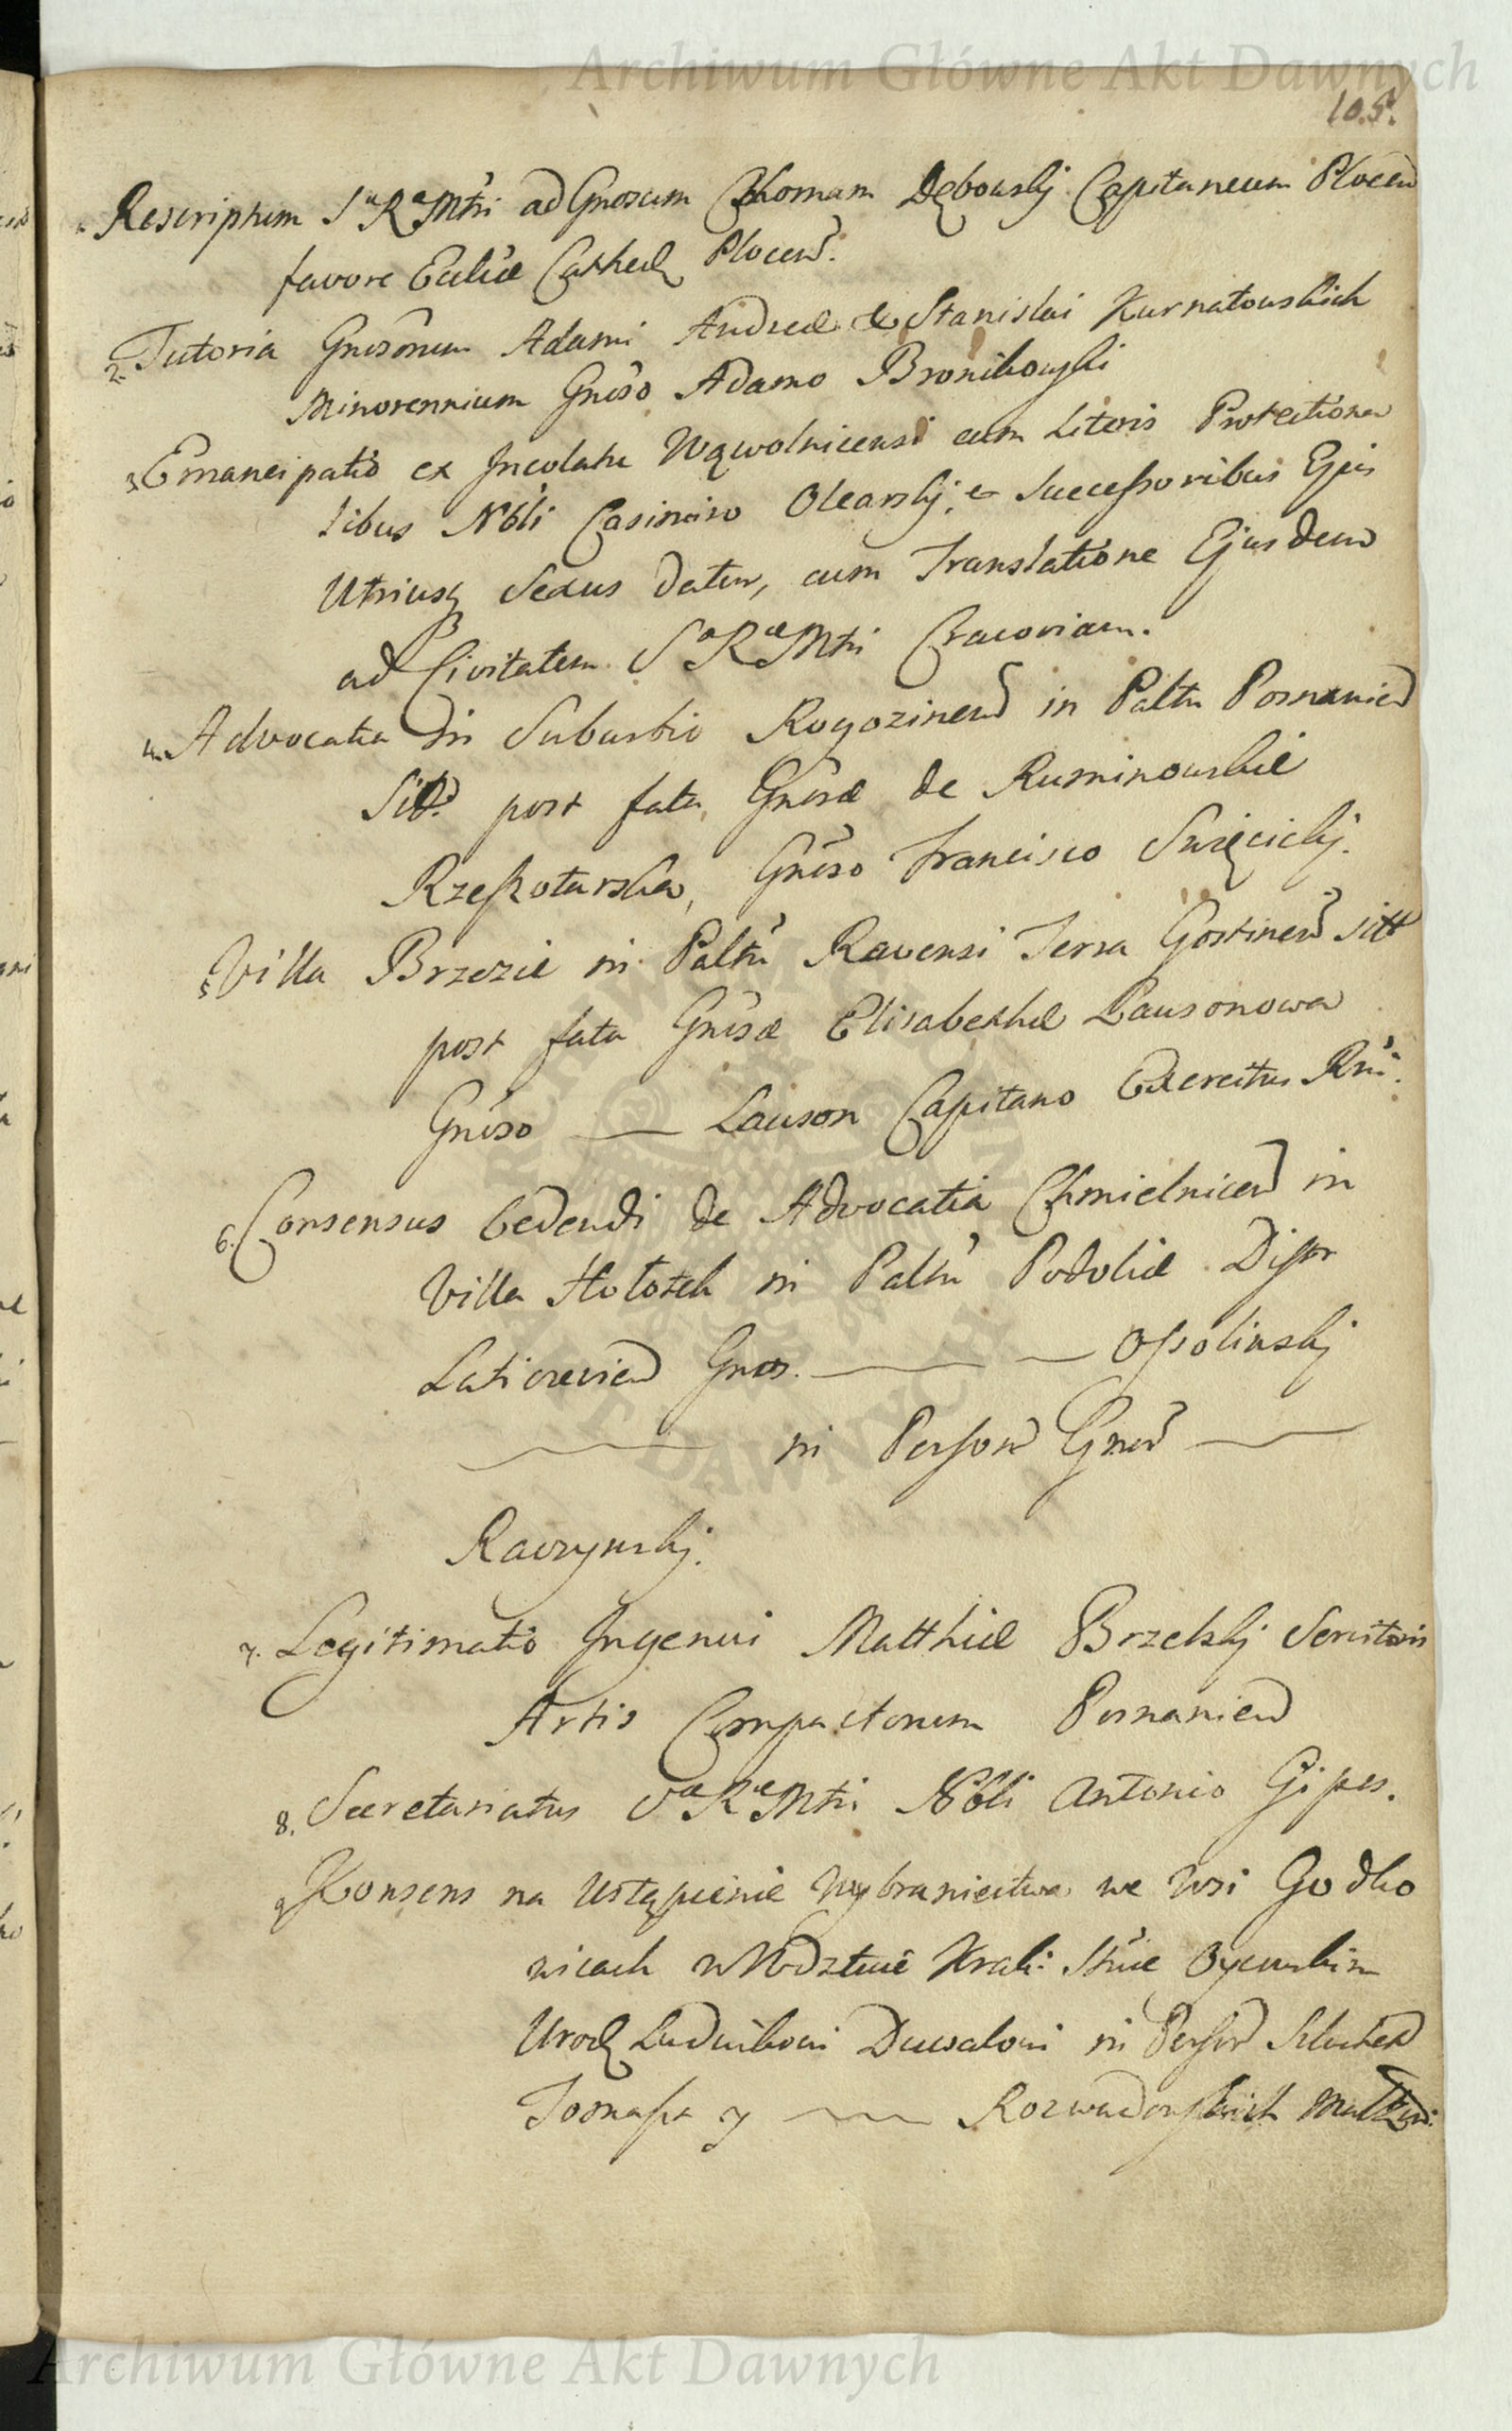 Archiwum Główne Akt Dawnych
105.
1. Rescriptum S. R. Mtti ad Gnosum Thomam Dębowskj Capitaneum Plocen
favore Eccliæ Cathed Plocen.
2. Tutoria Gnosorum Adami Andreæ & Stanislai Kurnatowskich
Minorennium Gnoso Adamo Bronikowski
3. Emancipatio ex Incolatu Wąwolnicensi cum Literis Protectiona
libus Nobli Casimiro Olearskj, & Successoribus Ejus
Utriusq Sexus datur, cum Translatione Ejusdem
ad Civitatem Sæ Ræ Mtti Cracoviam.
4. Advocatia in Suburbio Rogozinen in Palttu Posnanien
Sitt. post fata Gnosæ de Ruminowskie
Rzeszotarska, Gnoso Francisco Swięcickj.
5. Villa Brzezie in Palttu Ravensi Terra Gostinen sitt
post fata Gnosæ Elisabethæ Lausonowa
Gnoso — Lauson Capitano Exercitus Rni.
6. Consensus Cedendi de Advocatia Chmielnicen in
Villa Hołotek in Palttu Podoliæ Distr
Laticzevien Gnos. — — Opolinskj
— in Person Gnen —
Raczynskj.
7. Legitimatio Ingenui Matthiæ Brzelskj Servitoris
Artis Compactorum Posnanien
8. Secretariatus Sæ Ræ Mtti Nobli Antonio Gipes.
9. Konsens na Ustąpienie Wybraniectwa we Wsi Godko
wicach w Wdztwie Krak: Sttwie Oycowskim
Urodz Ludwikowi Duwalowi in Person Szlachetn
Tomasza y — Rozwadowskich Małżon.
Archiwum Główne Akt Dawnych